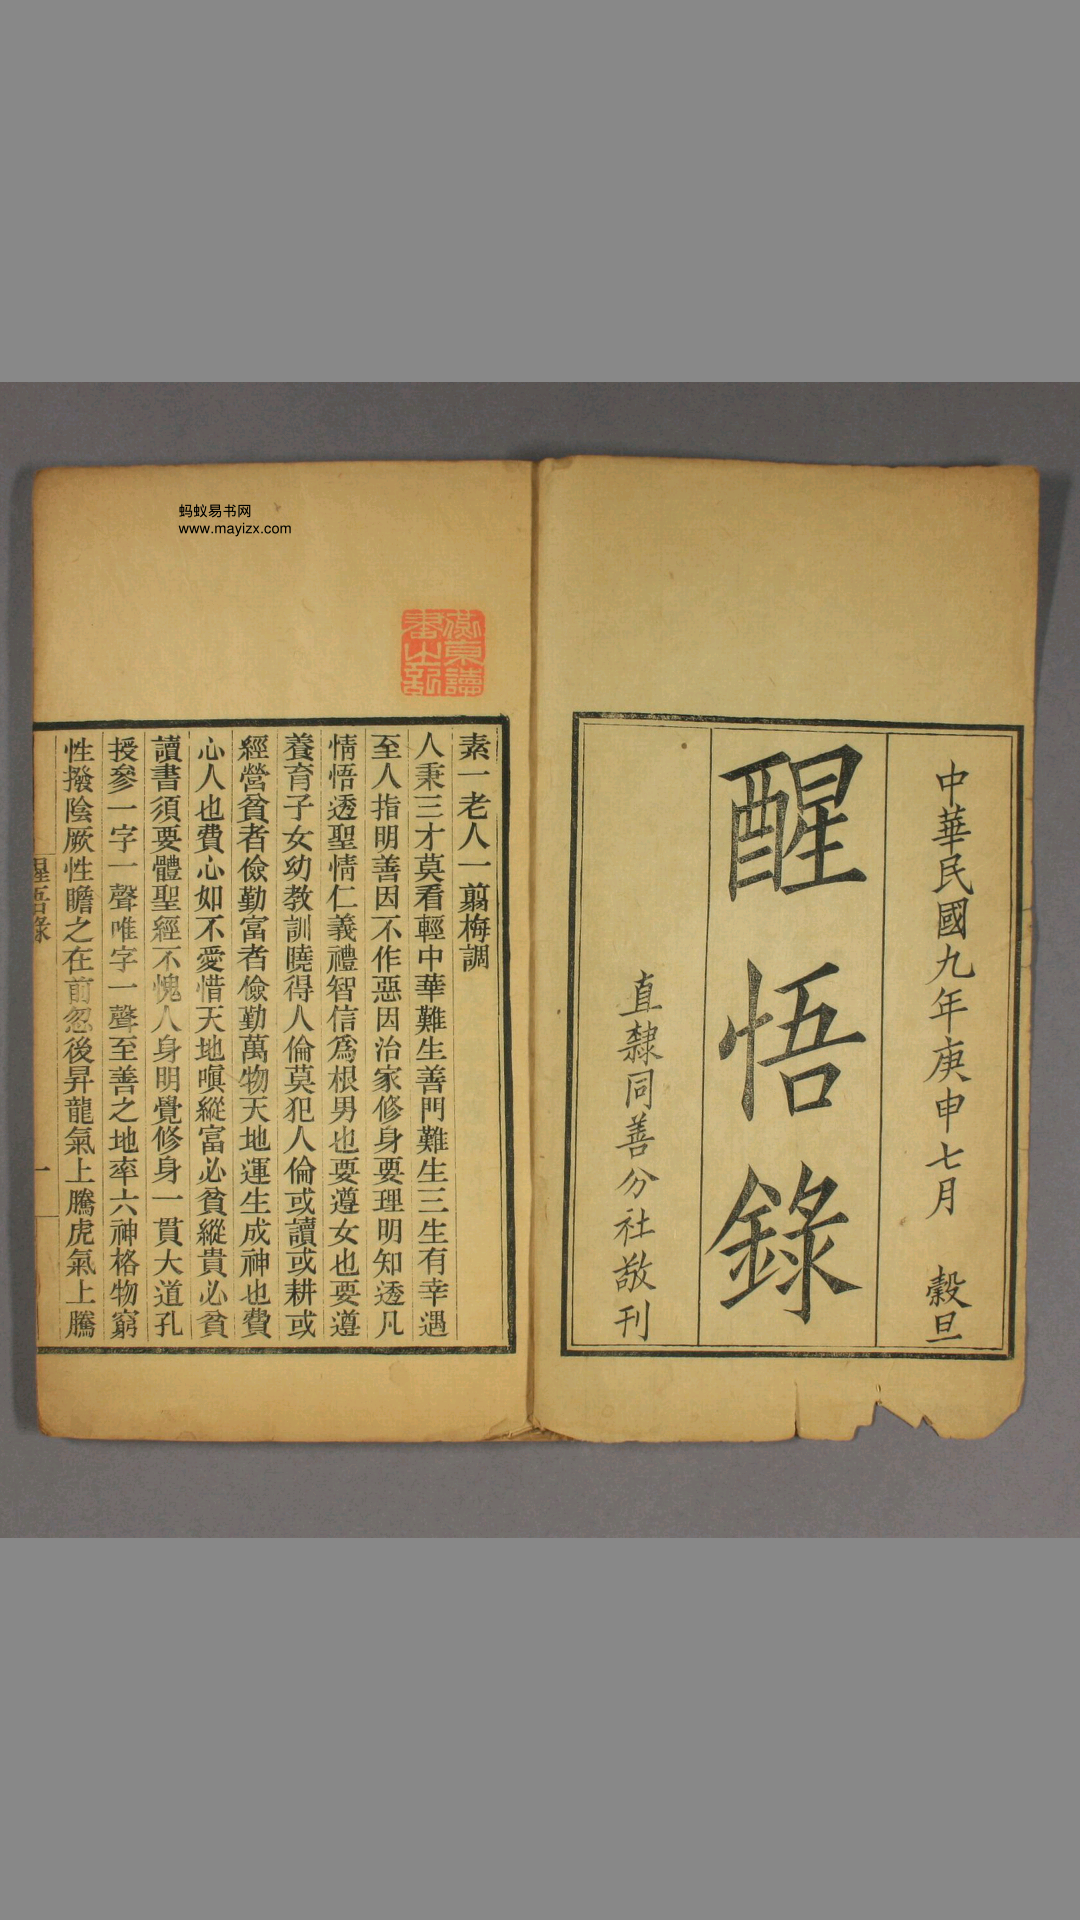 中華民國九年庚申七月 穀旦
醒悟錄
直隸同善分社敬刊
蚂蚁易书网
www.mayizx.com
素一老人一翦梅調
人秉三才莫看輕中華難生善門難生三生有幸遇
至人指明善因不作惡因治家修身要理明知透凡
情悟透聖情仁義禮智信爲根男也要遵女也要遵
養育子女幼教訓曉得人倫莫犯人倫或讀或耕或
經營貧者儉勤富者儉勤萬物天地運生成神也費
心人也費心如不愛惜天地嗔縱富必貧縱貴必貧
讀書須要體聖經不愧人身明覺修身一貫大道孔
授參一字一聲唯字一聲至善之地率六神格物窮
性撥陰厥性瞻之在前忽後昇龍氣上騰虎氣上騰
醒悟錄
一